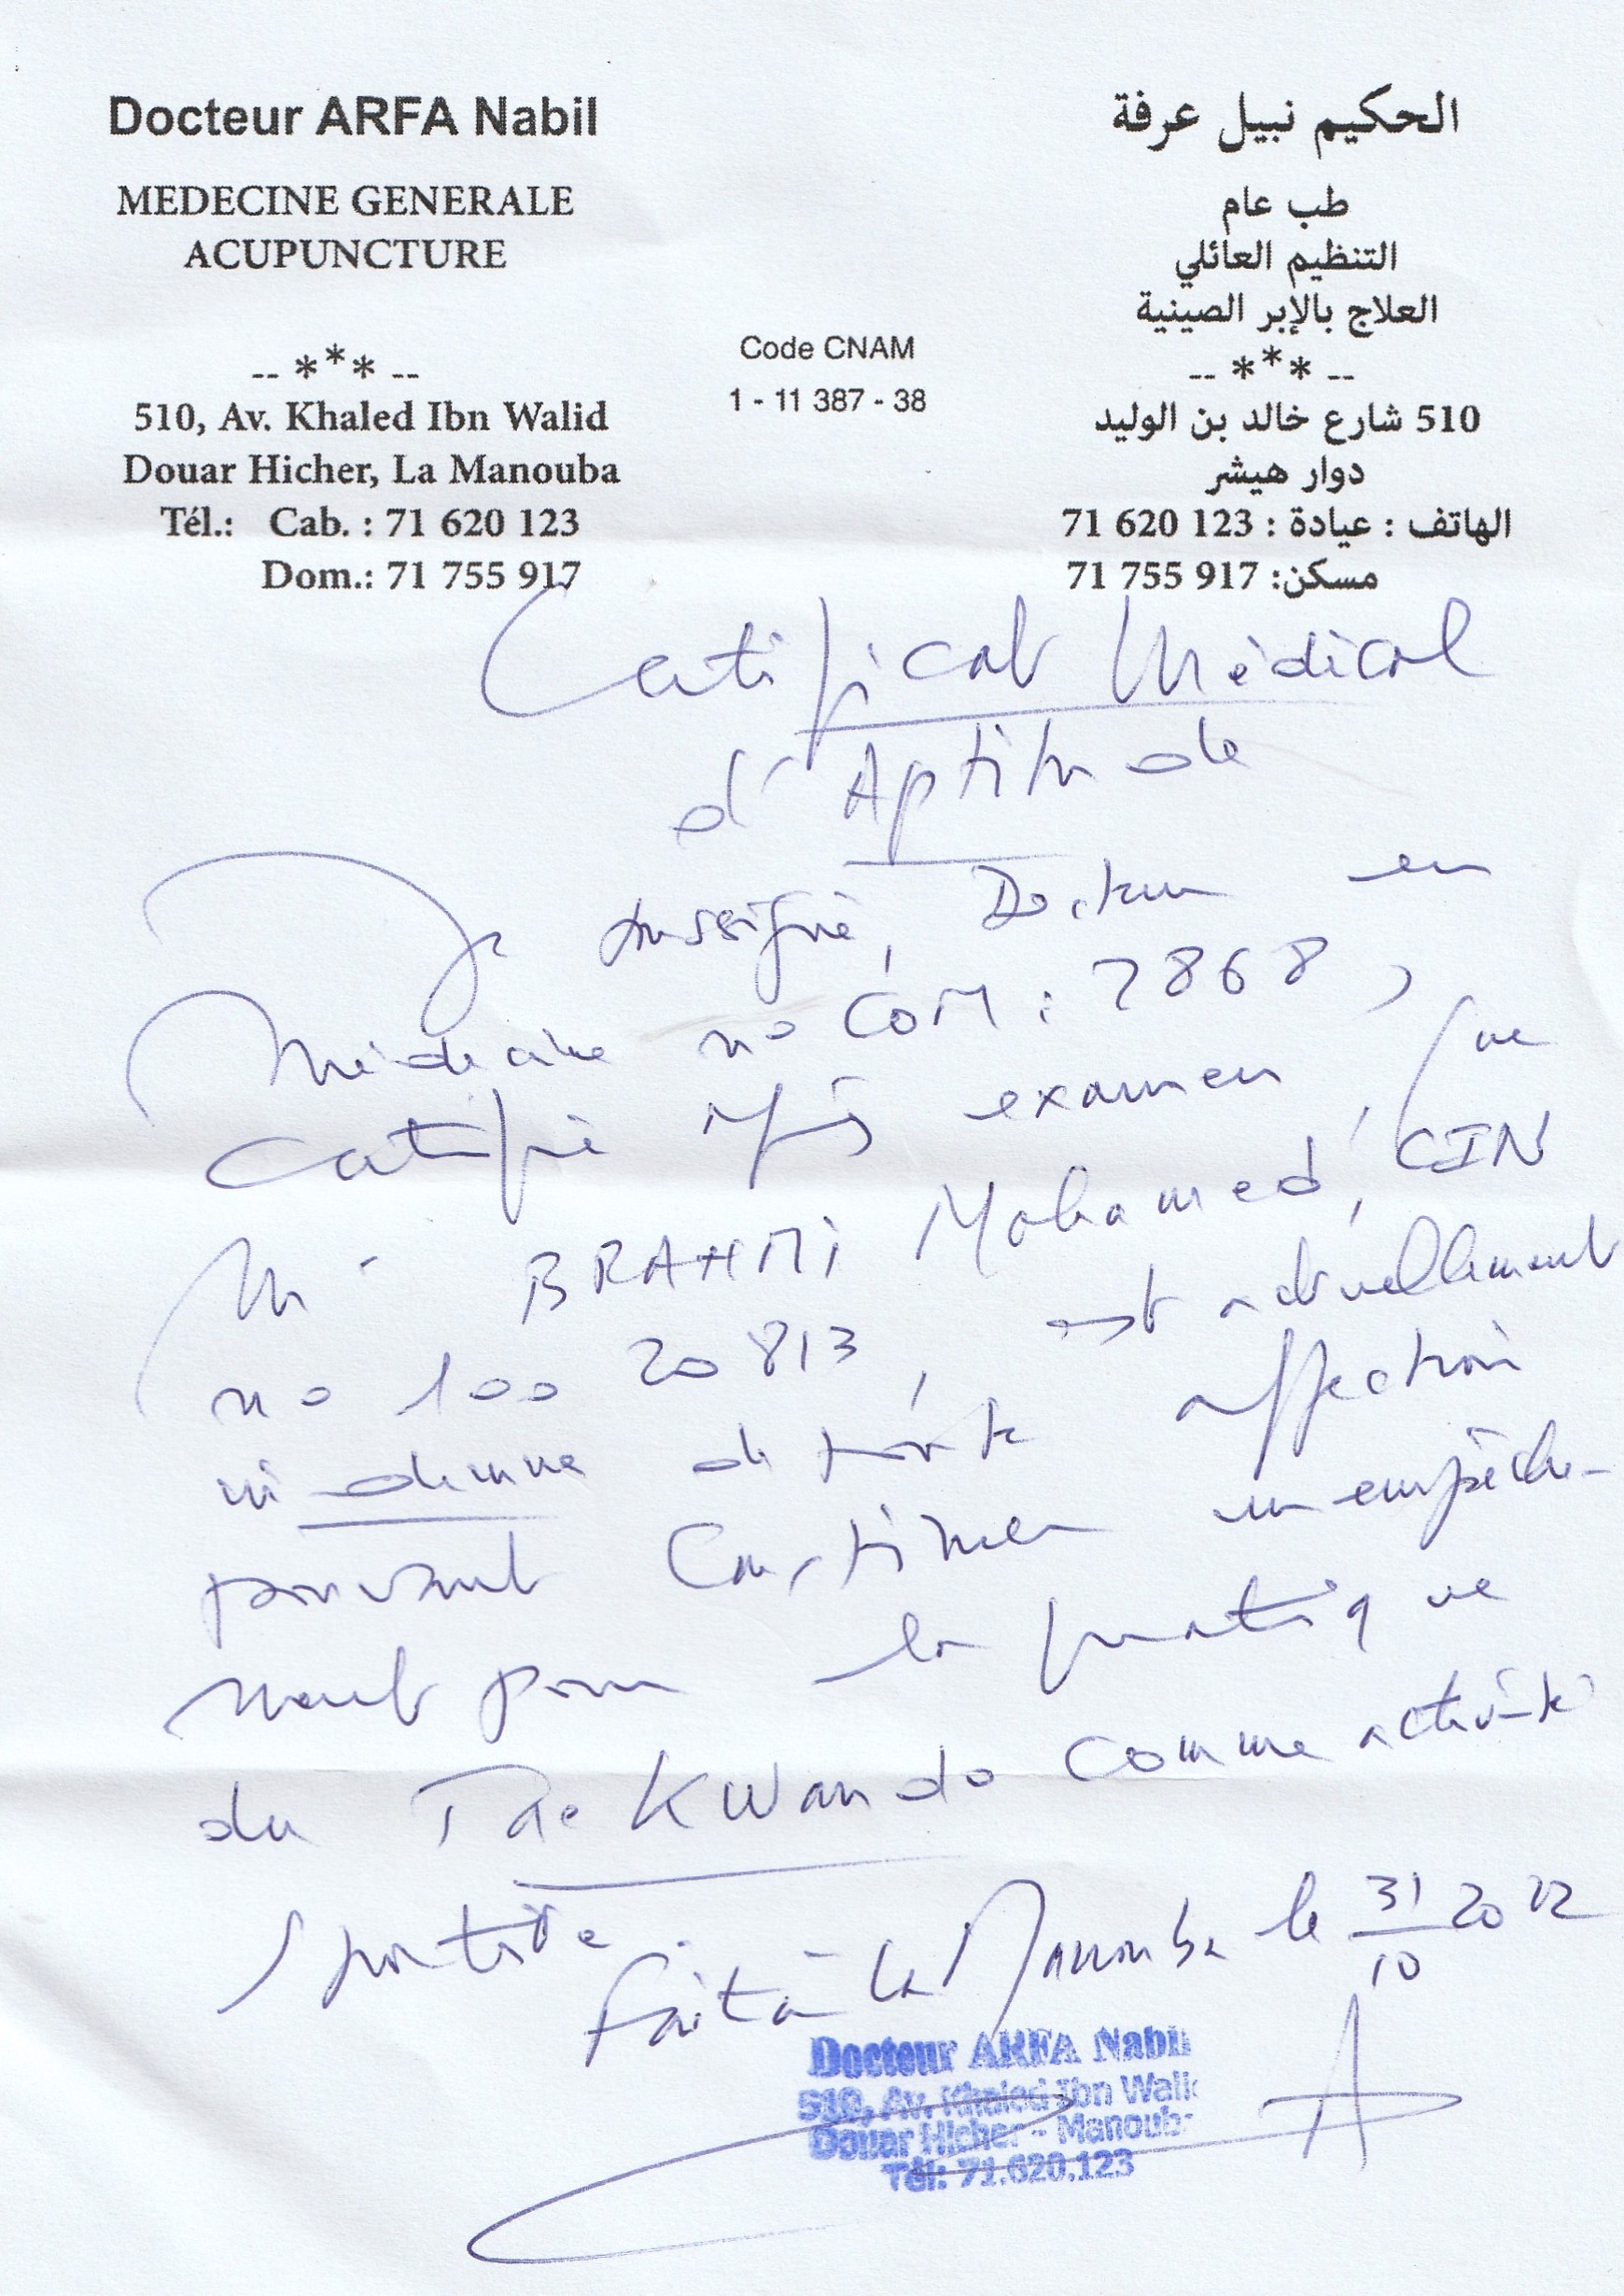 Docteur ARFA Nabil
MEDECINE GENERALE
ACUPUNCTURE
-- *** --
510, Av. Khaled Ibn Walid
Douar Hicher, La Manouba
Tél.: Cab. : 71 620 123
Dom.: 71 755 917
Code CNAM
1 - 11 387 - 38
الحكيم نبيل عرفة
طب عام
التنظيم العائلي
العلاج بالإبر الصينية
-- *** --
510 شارع خالد بن الوليد
دوار هيشر
الهاتف : عيادة : 123 620 71
مسكن: 917 755 71
Certificat Médical
d'Aptitude
Je soussigné, Docteur en
Médecine no COM : 7868,
certifie après examen, que
Mr BRAHMI Mohamed, CIN
no 100 20 813, est actuellement
indemne de toute affection
pouvant constituer un empêche-
ment pour la pratique
du TaeKwando comme activité
sportive.
Fait à la Manouba le 31/10 2022
Docteur ARFA Nabil
510, Av. Khaled Ibn Walid
Douar Hicher - Manouba
Tél: 71.620.123